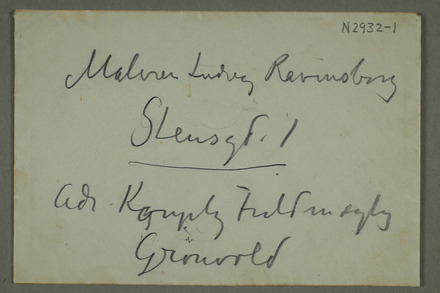 N2932-1
Maleren Ludvig Ravensberg
Stensgt. 1
adr.
Grønvold